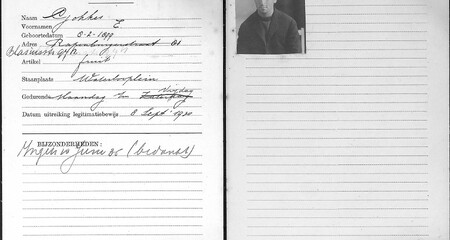 Naam Gokkes
Voornamen E
Geboortedatum 8-2-1899
Adres Rapenburgerstraat 81
Artikel fruit
Staanplaats Waterlooplein
Gedurende Maandag t/m Vrijdag
Datum uitreiking legitimatiebewijs 8 Sept. 1930
BIJZONDERHEDEN:
Juni 35 (bedankt)